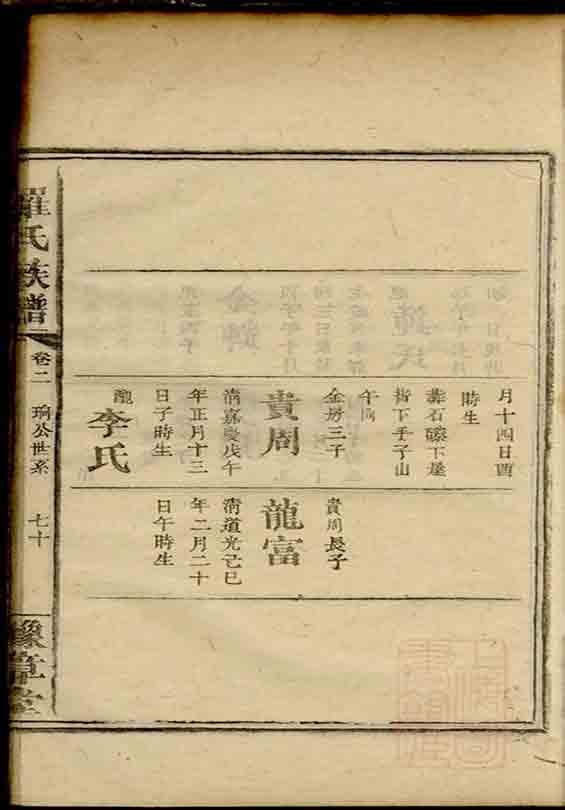 月十四日酉
時生
葬石磜下屋
背下手子山
午向
金塝三子
貴周
清嘉慶戊午
年正月十三
日子時生
配
李氏
貴周長子
龍富
清道光己巳
年二月二十
日午時生
羅氏族譜
卷二
珦公世系
七十
豫章堂